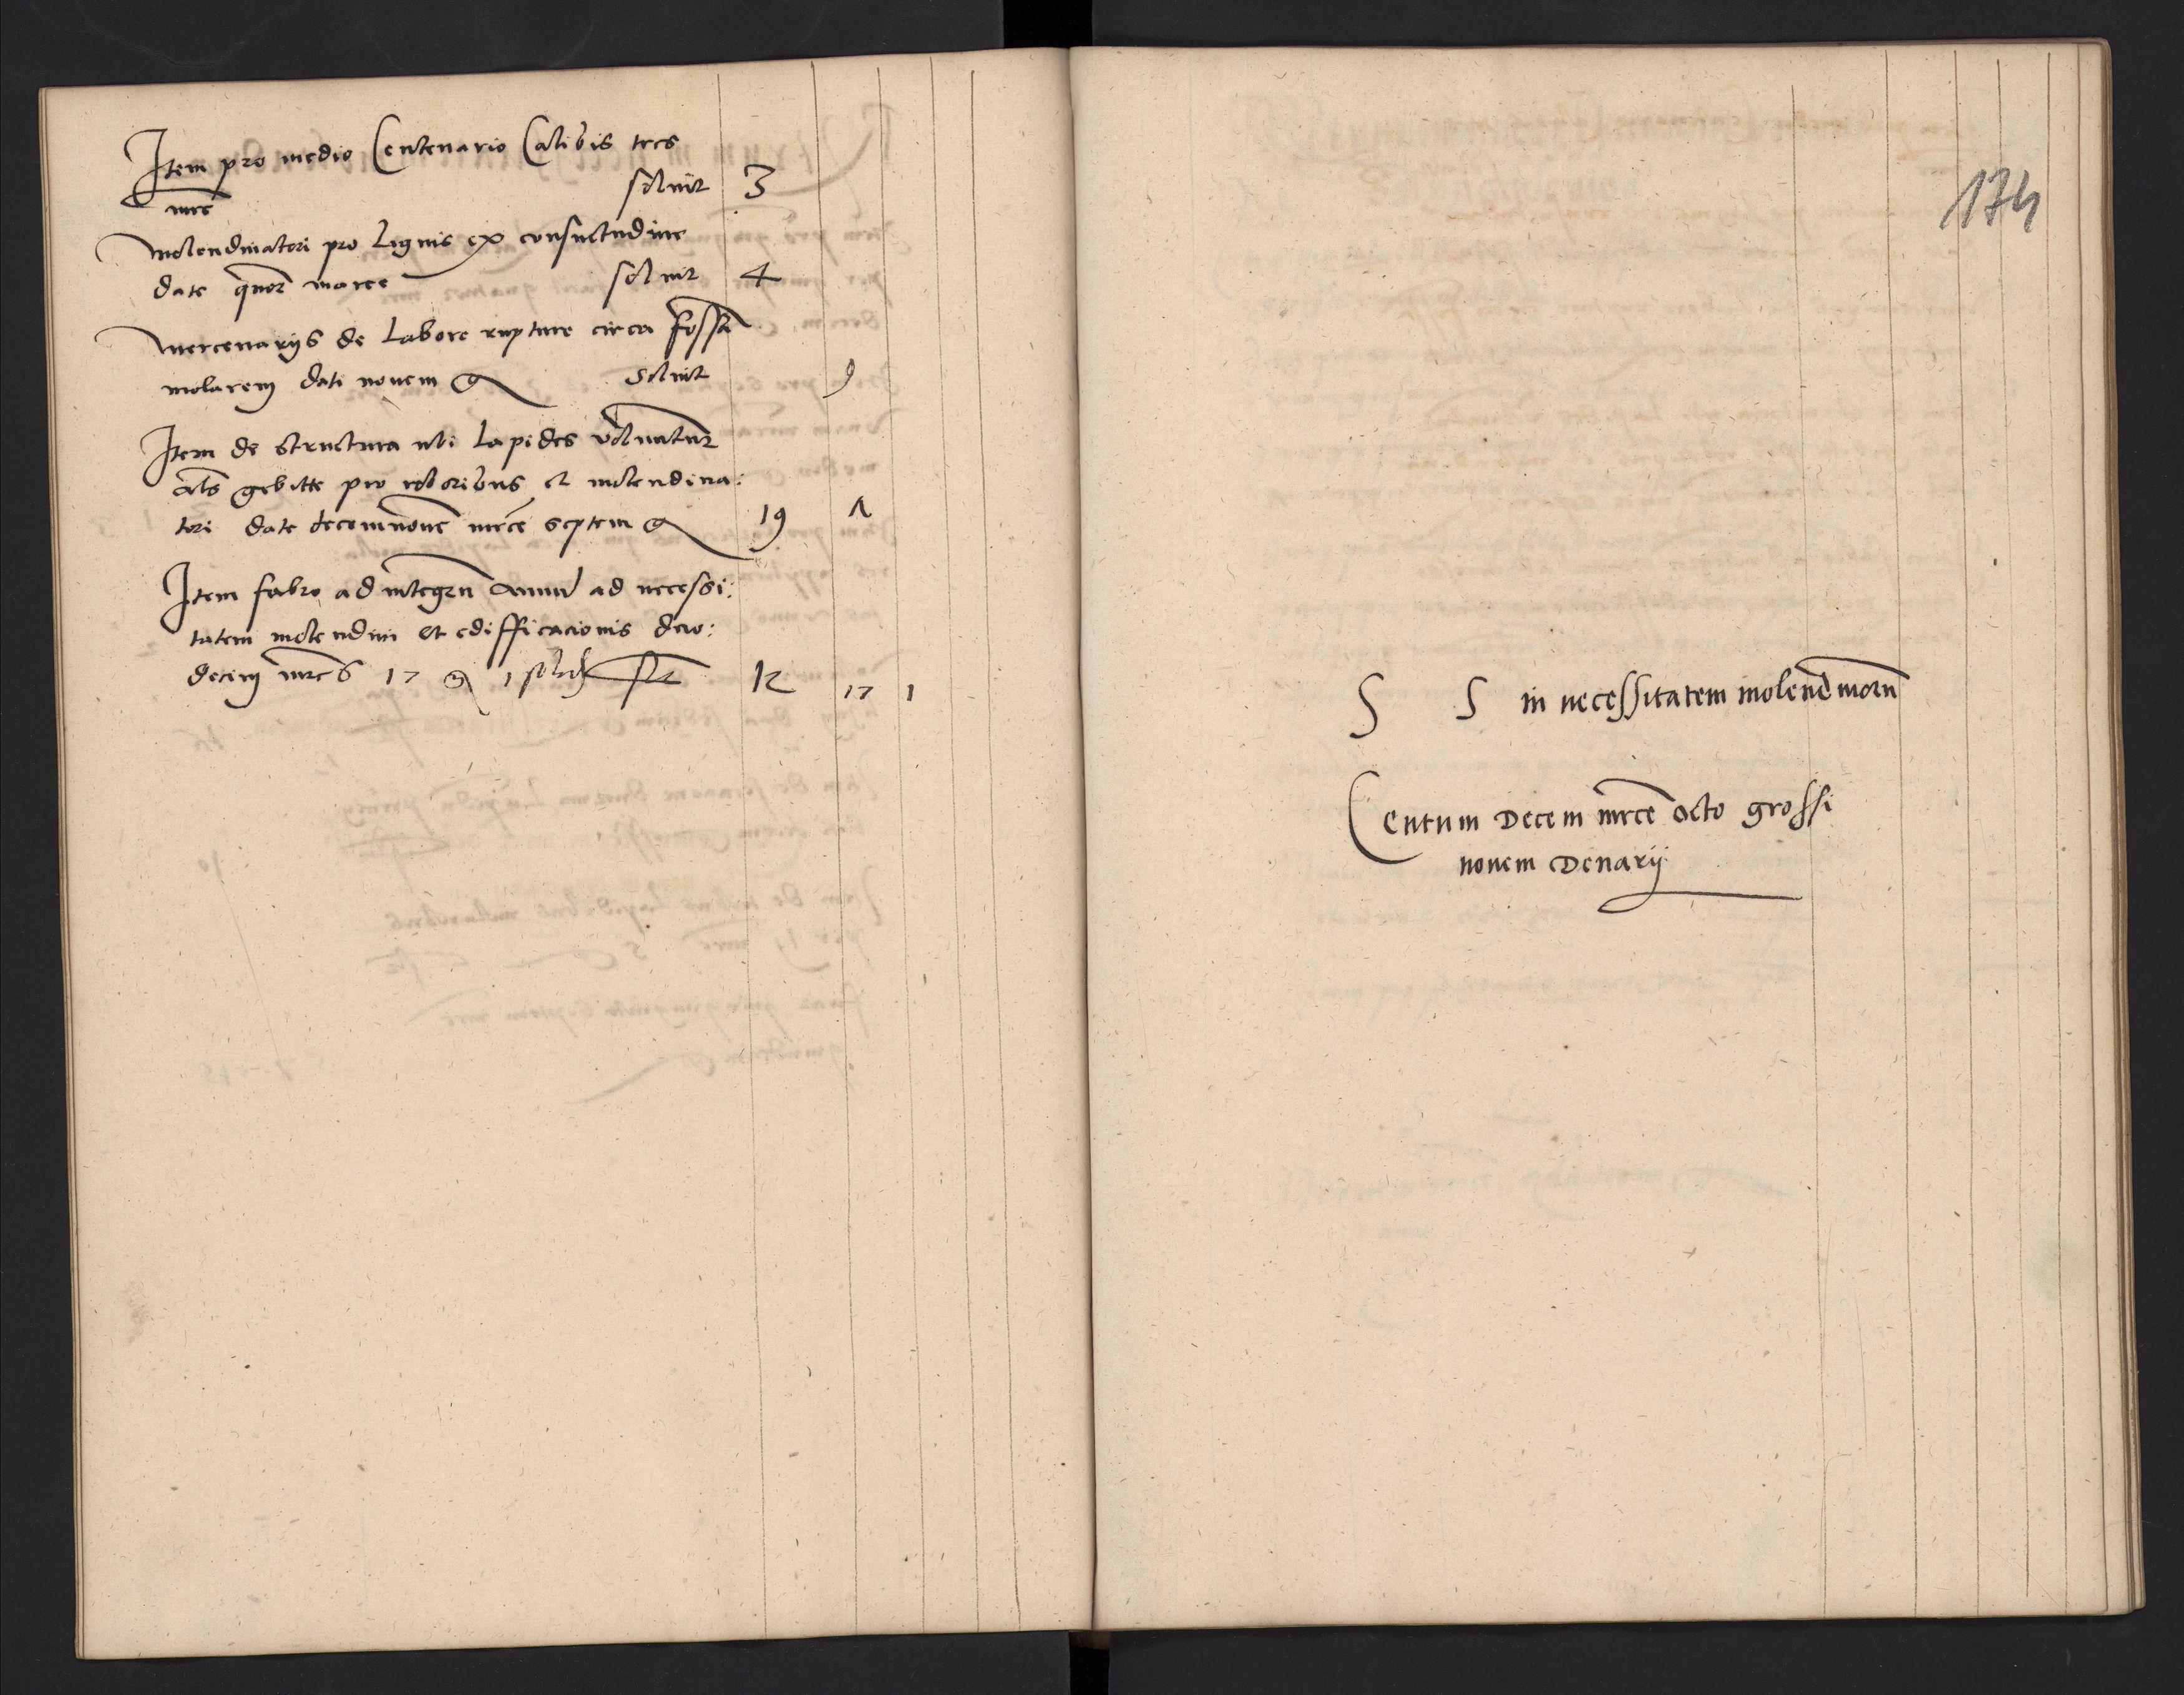 Item pro medio Centenario Calibis tres
mrc soluit 3
Molendinatori pro Lignis ex consuetudine
date quor marce soluit 4
Mercenarijs de Labore rupture circa fossa
molarem dati nouem g soluit 9
Item de structura ubi Lapides voluntur
als gebitte pro roboribus et molendina:
tori date decemnoue mrce septem g 19 Λ
Item fabro ad integru Annu ad necessi:
tatem molendini et edifficacionis duo:
decim mrc 17 g 1 solid 12 17 1
174
S S in necessitatem molendinoru
Centum Decem mrce octo grossi
nouem Denarij